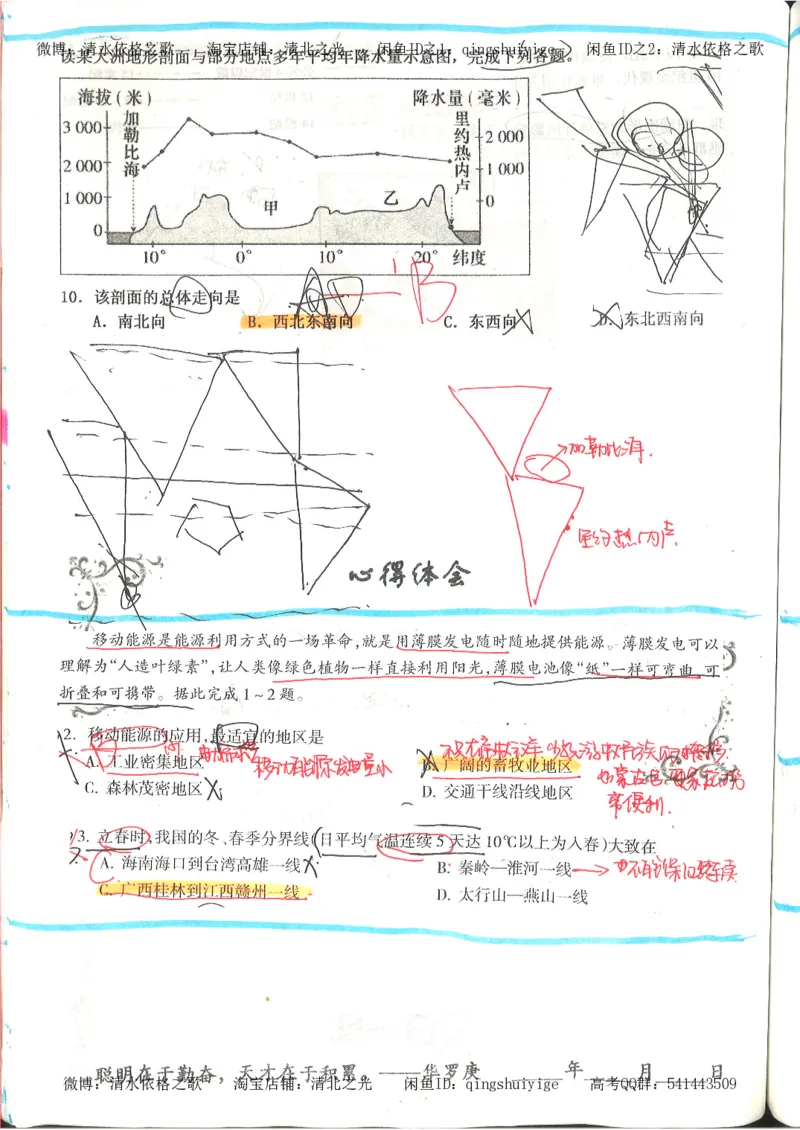 微博：清水依格之歌 淘宝店铺：清北之光 闲鱼ID之1：qingshuiyige 闲鱼ID之2：清水依格之歌
读某大洲地形剖面与部分地点多年平均年降水量示意图，完成下列各题。
海拔(米) 降水量(毫米)
加勒比海
里约热内卢
3 000
2 000
2 000
1 000
1 000
0
0
甲
乙
10° 0° 10° 20° 纬度
10. 该剖面的总体走向是
B
A. 南北向 B. 西北东南向 C. 东西向 D. 东北西南向
加勒比海.
里约热内卢
心得体会
移动能源是能源利用方式的一场革命,就是用薄膜发电随时随地提供能源。薄膜发电可以
理解为“人造叶绿素”,让人类像绿色植物一样直接利用阳光,薄膜电池像“纸”一样可弯曲、可
折叠和可携带。据此完成1～2题。
2. 移动能源的应用,最适宜的地区是
A. 工业密集地区 B. 广阔的畜牧业地区
C. 森林茂密地区 D. 交通干线沿线地区
非常便利.
3. 立春时,我国的冬、春季分界线(日平均气温连续5天达10℃以上为入春)大致在
A. 海南海口到台湾高雄一线 B. 秦岭—淮河一线
C. 广西桂林到江西赣州一线 D. 太行山—燕山一线
聪明在于勤奋，天才在于积累。——华罗庚 年 月 日
微博：清水依格之歌 淘宝店铺：清北之光 闲鱼ID：qingshuiyige 高考QQ群：541443509